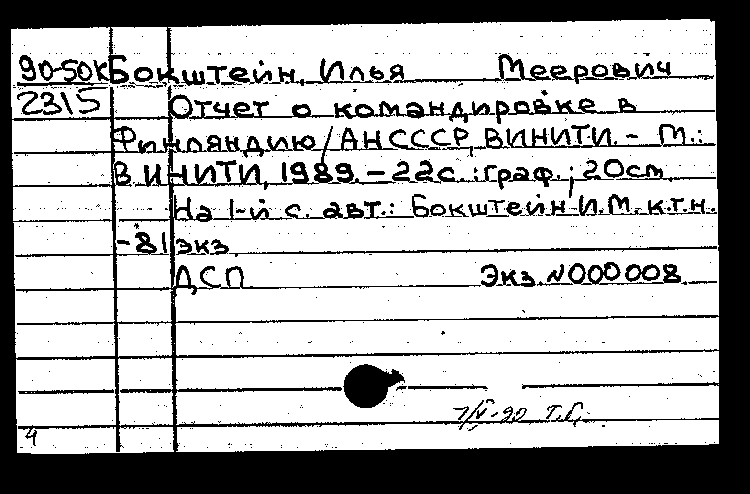 90-50к Бокштейн, Илья Меерович
2315 Отчет о командировке в
Финляндию / АН СССР, ВИНИТИ. - М.:
ВИНИТИ, 1989. - 22с. : граф. ; 20см
На 1-й с. авт.: Бокштейн И.М. к.т.н.
- 81 экз.
ДСП Экз. №000008
7/V-90 Т.Г.
4